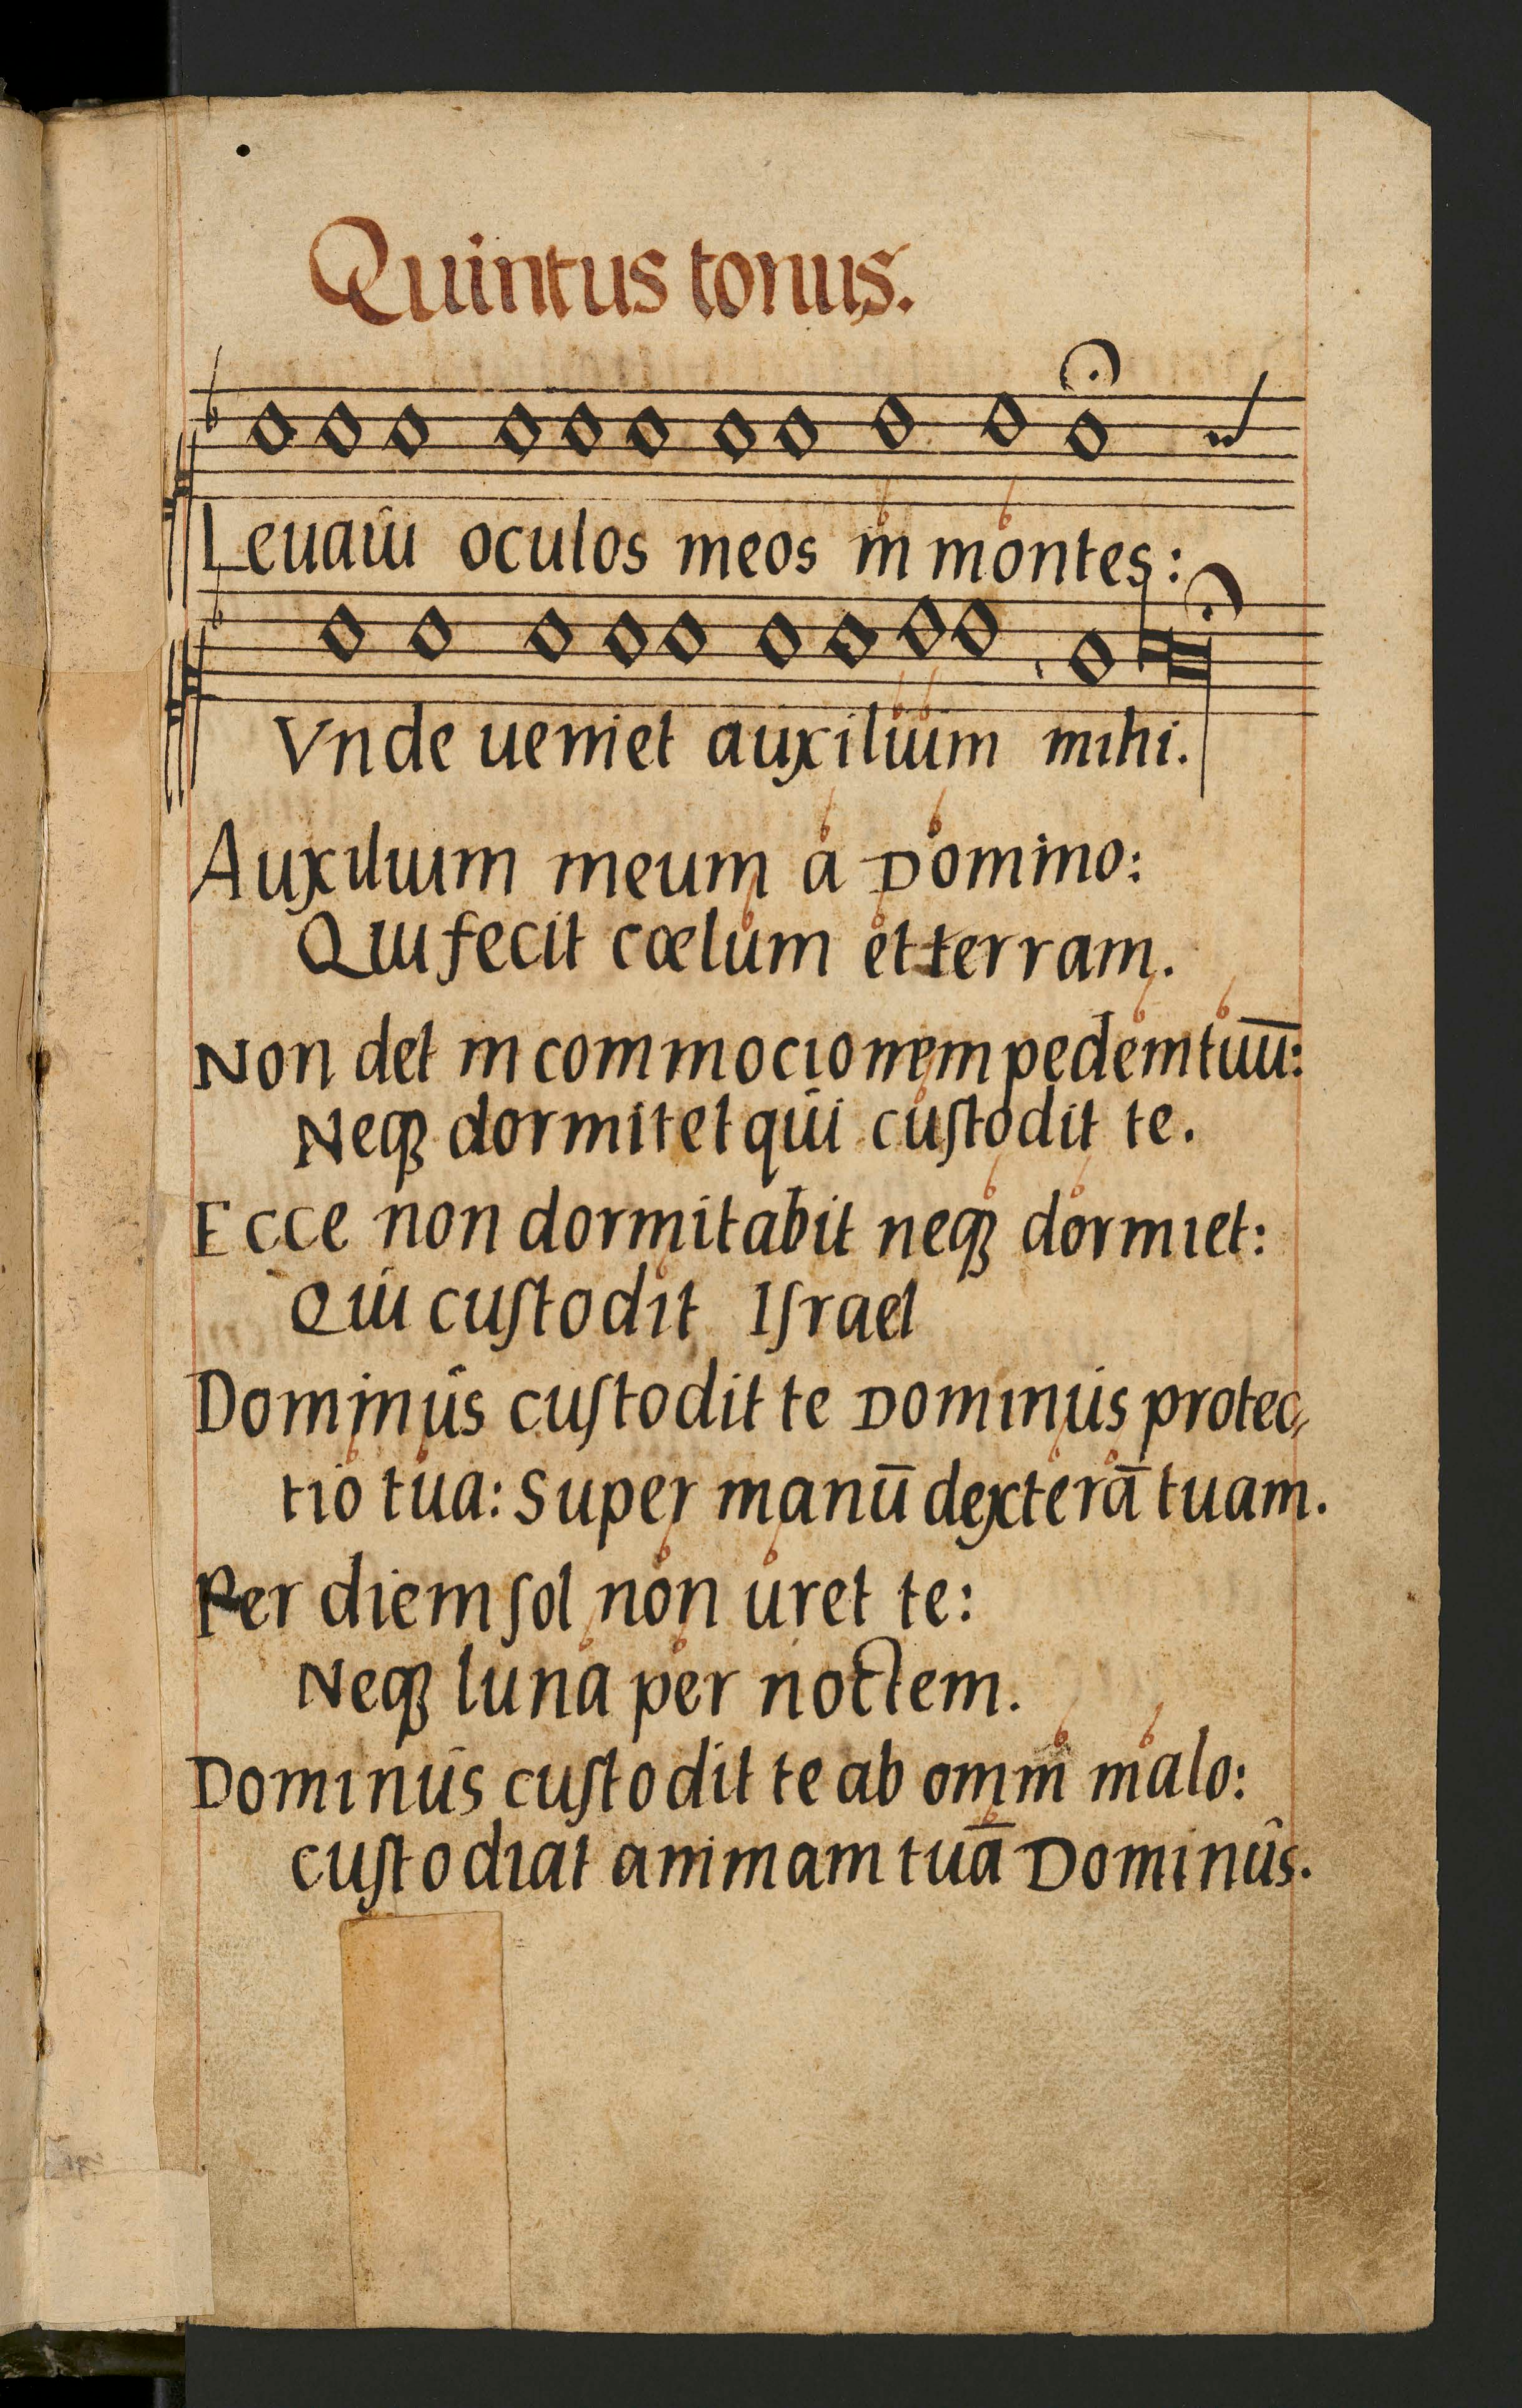 Quintus tonus.
Leuaui oculos meos in montes:
Vnde ueniet auxilium mihi.
Auxilium meum a Domino:
Qui fecit cœlum et terram.
Non det in commocionem pedem tuū:
Neqꝫ dormitet qui cuſtodit te.
Ecce non dormitabit neqꝫ dormiet:
Qui cuſtodit Iſrael
Dominus cuſtodit te Dominus protec⸗
tio tua: Super manū dexterā tuam.
Per diem ſol non uret te:
Neqꝫ luna per noctem.
Dominus cuſtodit te ab omni malo:
cuſtodiat animam tuā Dominus.